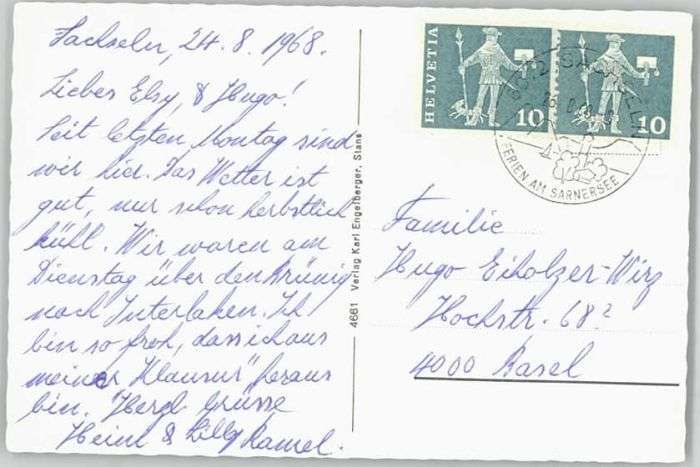 Sachseln, 24.8.1968.
Lieber Elsy, & Hugo!
Seit letzten Montag sind
wir hier. Das Wetter ist
gut, nur schon herbstlich
kühl. Wir waren am
Dienstag über den Brünig
nach Interlaken. Ich
bin so froh, dass ich aus
meiner "Klausur" heraus
bin. Herzl. Grüsse
Heini & Lilly
4661 Verlag Karl Engelberger, Stans
HELVETIA
10
10
FERIEN AM SARNERSEE
Familie
Hugo Eiholzer-Wirz
Hochstr. 68²
4000 Basel